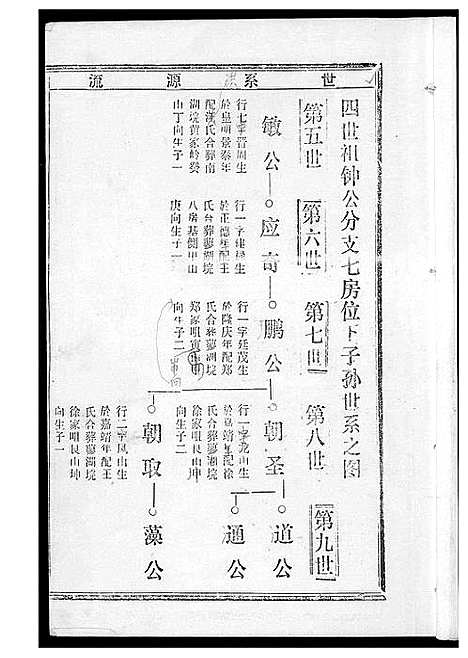 世系源流
四世祖钟公分支七房位下子孙世系之图
第五世
第六世
第七世
第八世
第九世
敏公
应奇
鹏公
朝圣
道公
通公
行七字晋周生
於皇明景泰年
配汪氏合葬南
湖垸黄家岭癸
山丁向生子一
行一字建候生
於正德年配王
氏合葬蓼湖垸
八房基側甲山
庚向生子一
行一字廷茂生
於隆庆年配郑
氏合葬蓼湖垸
郑家咀寅
向生子二
行一字龙山生
於嘉靖年配徐
氏合葬蓼湖垸
徐家咀艮山坤
向生子二
朝取
藻公
行二字凤山生
於嘉靖年配王
氏合葬蓼湖垸
徐家咀艮山坤
向生子一